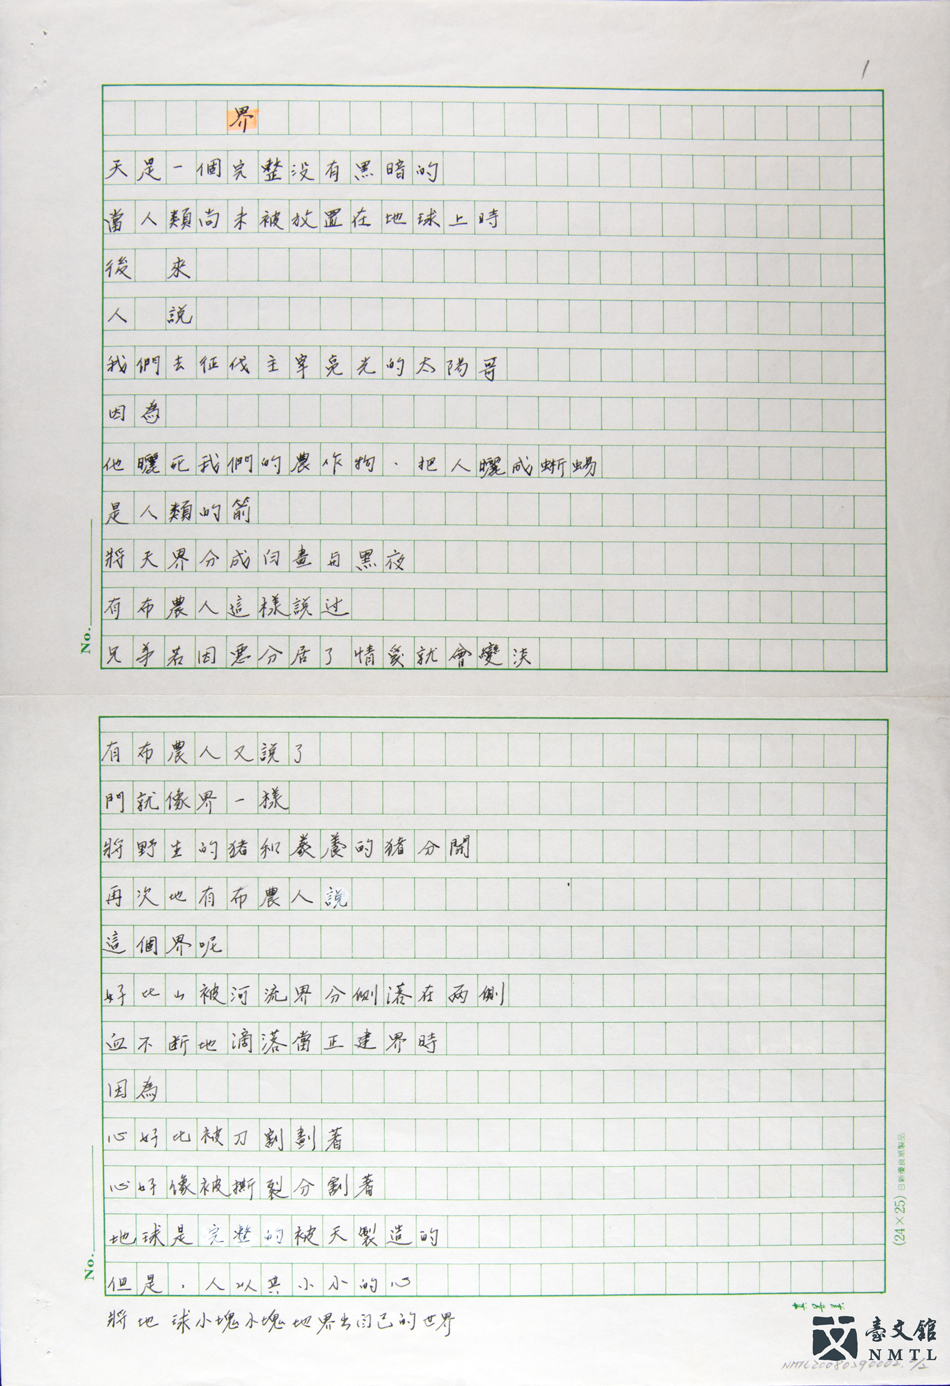 1
界
天是一個完整没有黑暗的
當人類尚未被放置在地球上時
後 來
人 說
我們去征伐主宰亮光的太陽哥
因為
他曬死我們的農作物．把人曬成蜥蜴
是人類的箭
將天界分成白晝与黑夜
有布農人這樣說过
兄弟若因惡分居了情愛就會變淡
No.
有布農人又說了
門就像界一樣
將野生的猪和豢養的猪分開
再次地有布農人說
這個界呢
好比山被河流界分側落在兩側
血不断地滴落當正建界時
因為
心好比被刀割劃著
心好像被撕裂分割著
地球是完整的被天製造的
但是．人以其小小的心
將地球小塊小塊地界出自己的世界
No.
(24×25)日新優良紙製品
臺文館
NMTL